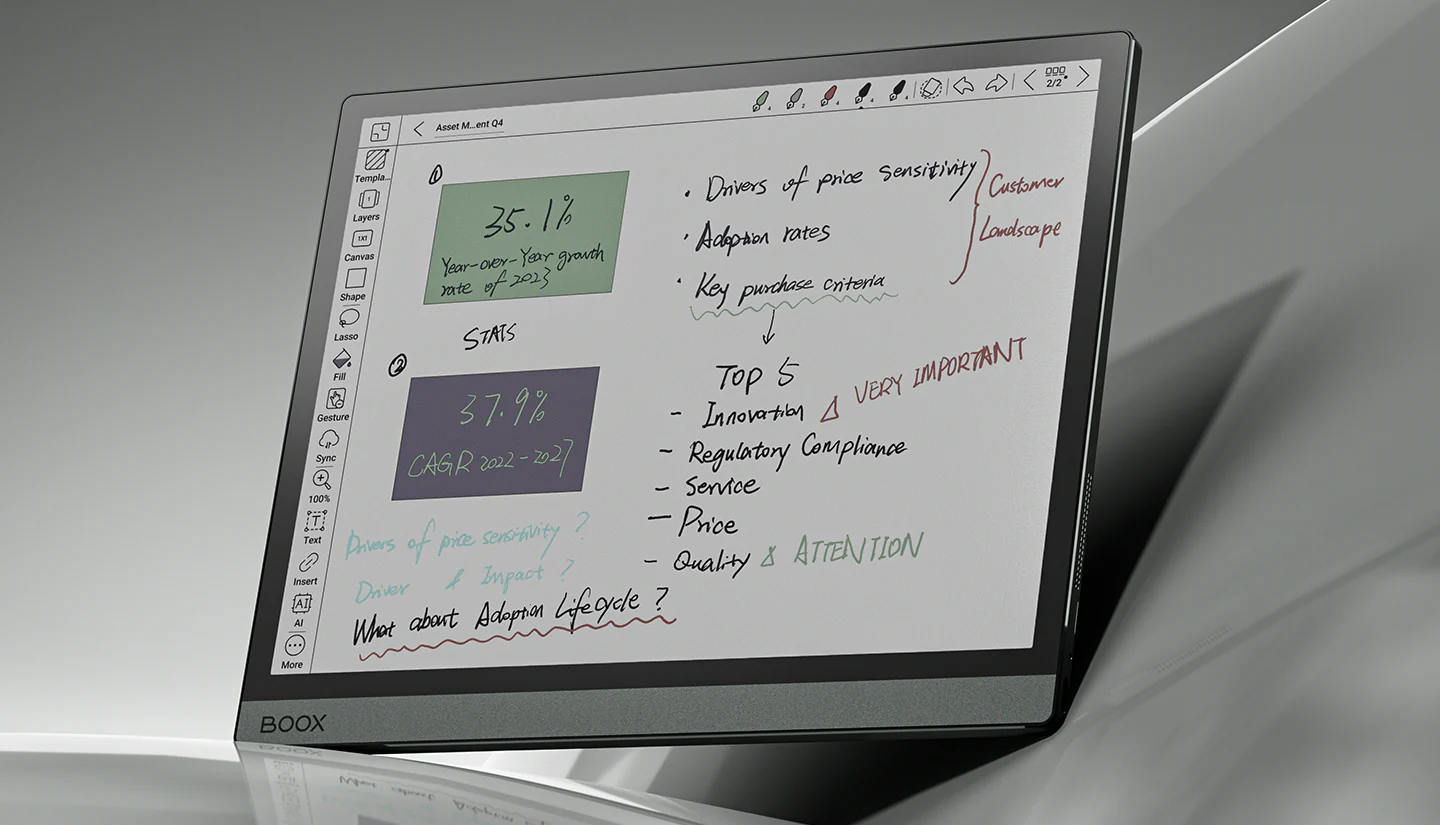 Asset M...ent Q4
2/2
Templa...
Layers
Canvas
Shape
Lasso
Fill
Gesture
Sync
100%
Text
Insert
AI
More
1
35.1%
Year-over-Year growth
rate of 2023
STATS
2
37.9%
CAGR 2022-2027
Drivers of price sensitivity ?
Driver & Impact ?
What about Adoption Lifecycle ?
• Drivers of price sensitivity
• Adoption rates
• Key purchase criteria
Customer
Landscape
TOP 5
- Innovation
VERY IMPORTANT
- Regulatory Compliance
- Service
- Price
- Quality
ATTENTION
BOOX